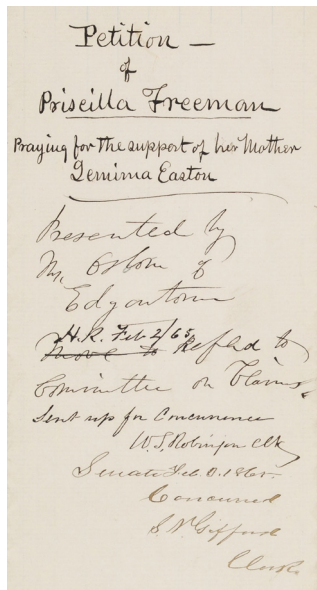 Petition —
of
Priscilla Freeman
Praying for the support of her Mother
Jemima Easton
Presented by
Mr. Osborn of
Edgartown
H.R. Feb 2/65,
Move to Refed to
Committee on Claims.
Sent up for Concurrence
W.S. Robinson Clk
Senate Feb. 1865.
Concurred
S.N. Gifford
Clerk